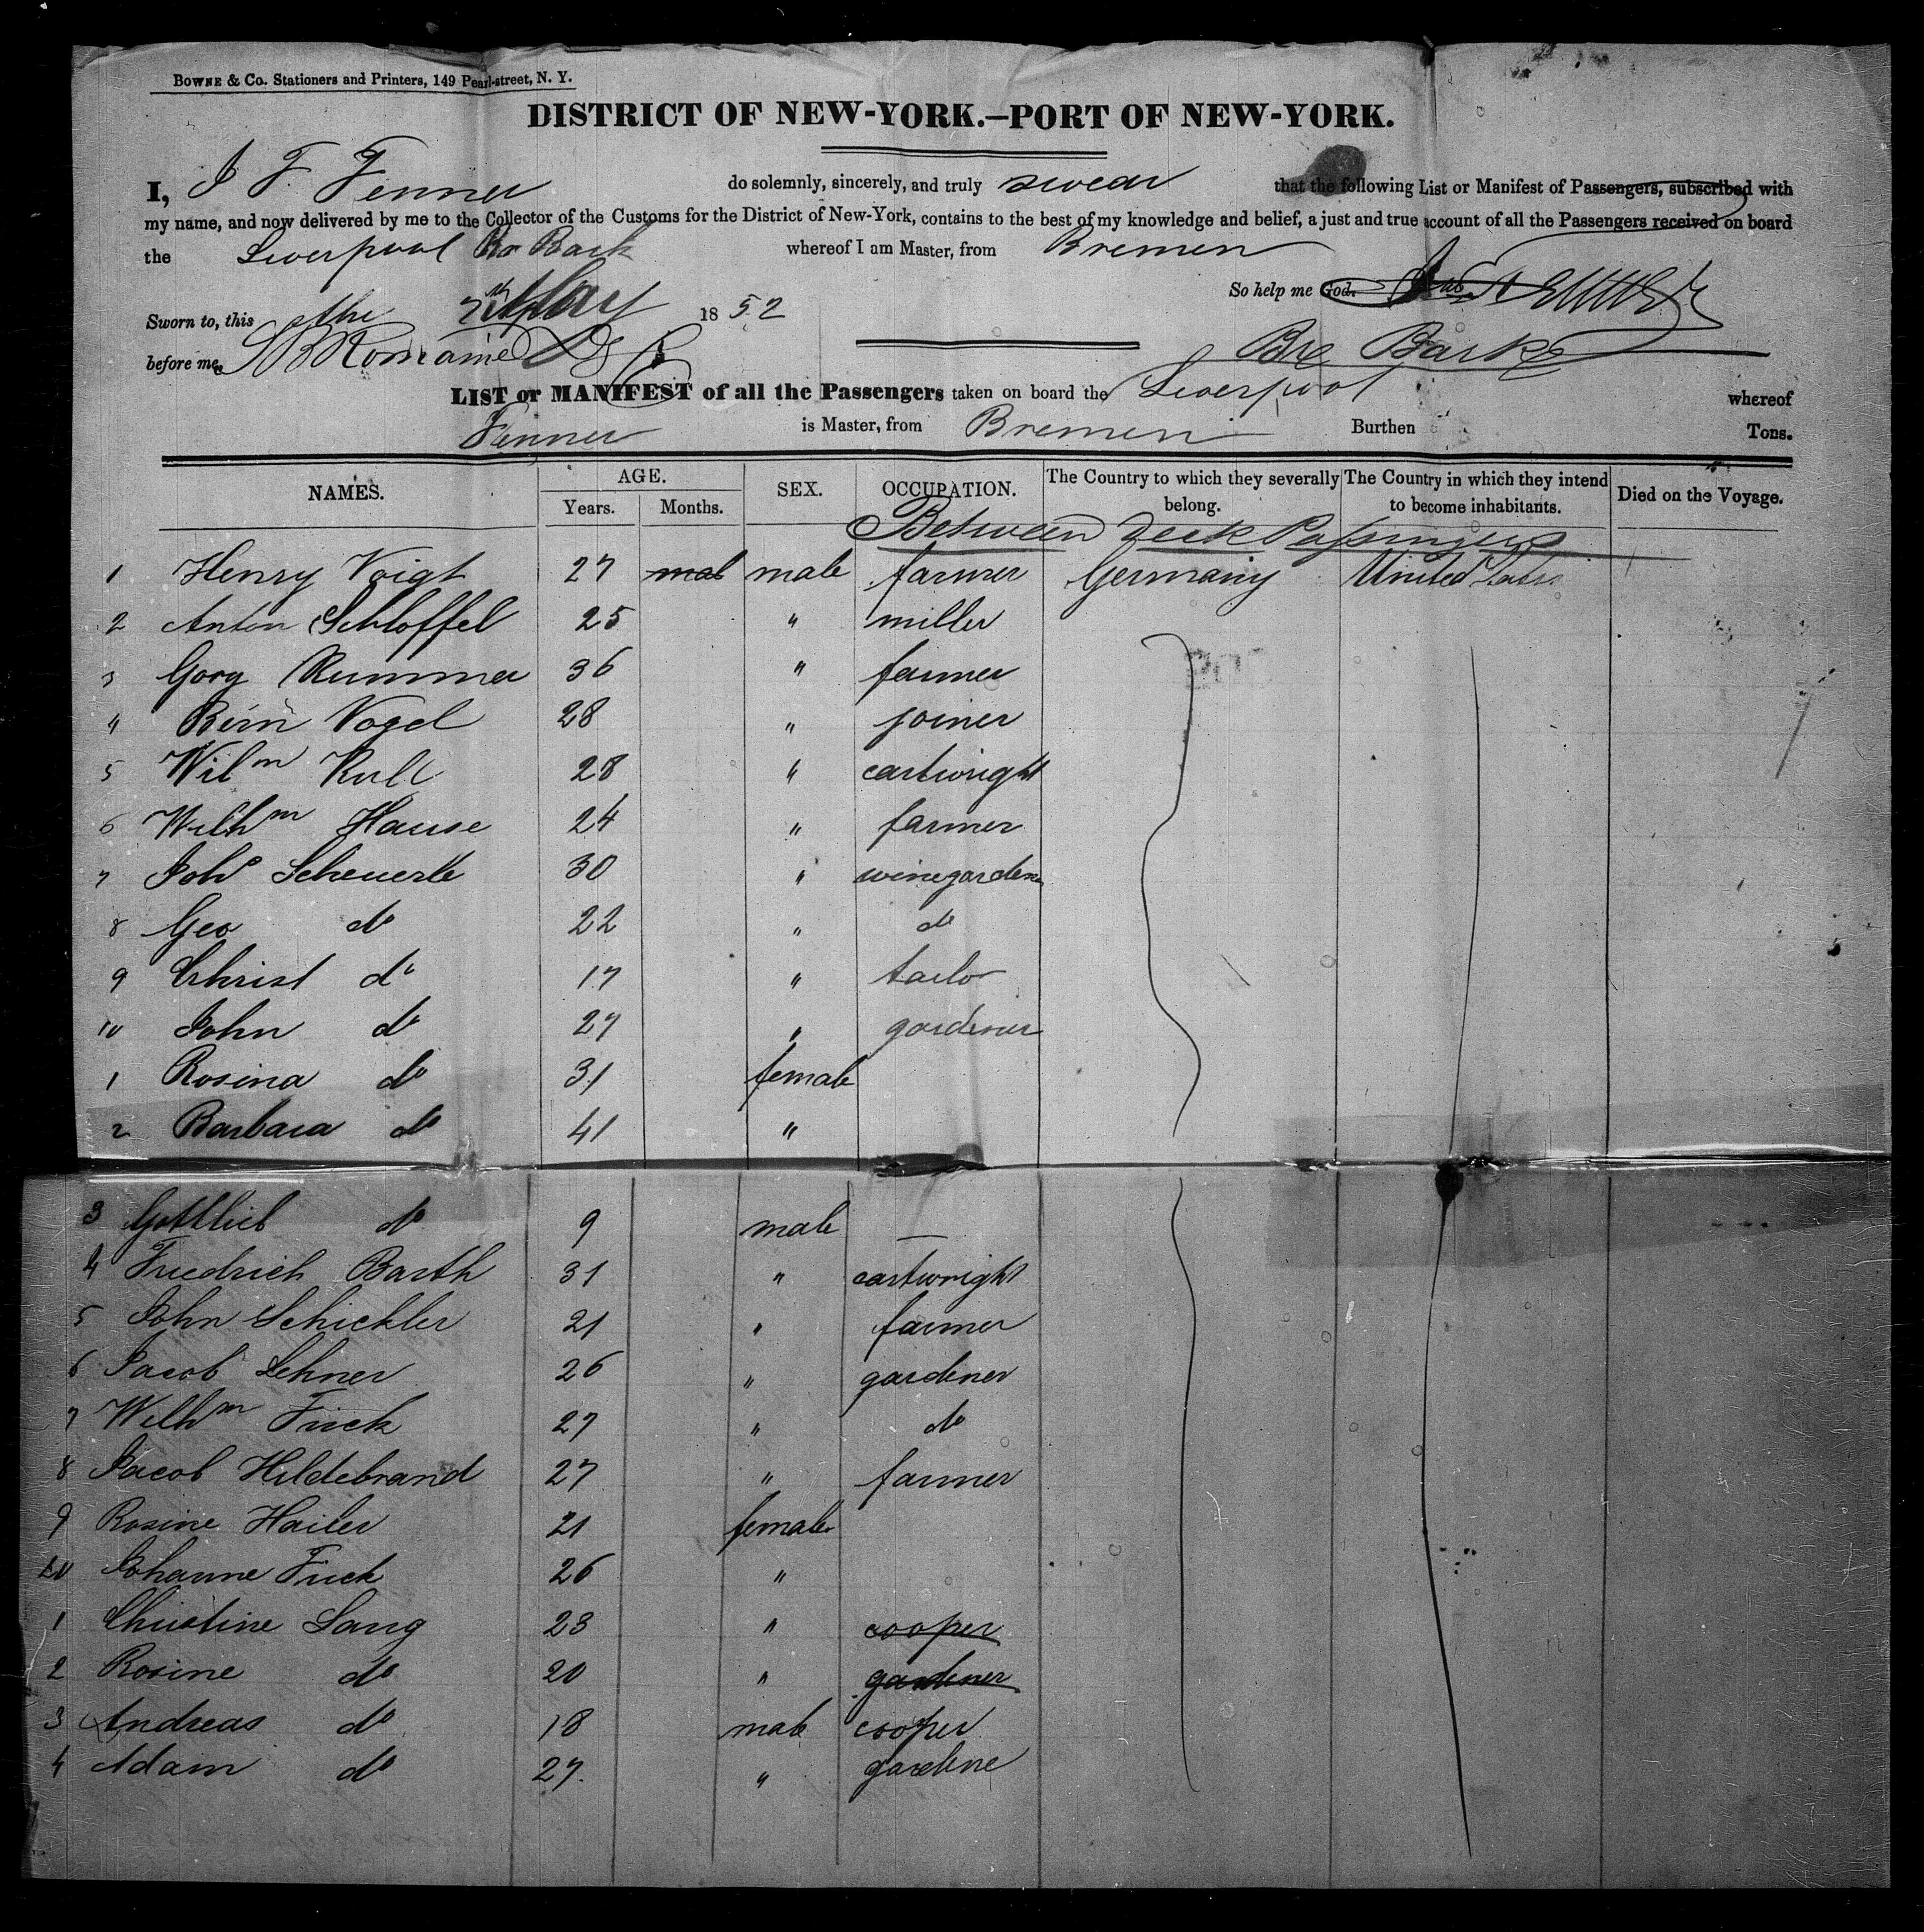 BOWNE & CO. Stationers and Printers, 149 Pearl-street, N. Y.
DISTRICT OF NEW-YORK.—PORT OF NEW-YORK.
I, J F. Fenner do solemnly, sincerely, and truly swear that the following List or Manifest of Passengers, subscribed with
my name, and now delivered by me to the Collector of the Customs for the District of New-York, contains to the best of my knowledge and belief, a just and true account of all the Passengers received on board
the Liverpool Br Bark whereof I am Master, from Bremen
So help me God.
Sworn to, this the 7th May 1852
before me, Romaine
Bre Bark
LIST or MANIFEST of all the Passengers taken on board the Liverpool whereof
Fenner is Master, from Bremen Burthen Tons.
NAMES. AGE. Years. Months. SEX. OCCUPATION. The Country to which they severally belong. The Country in which they intend to become inhabitants. Died on the Voyage.
Between Deck Passengers
1 Henry Voigt 27 mal male farmer Germany United States
2 Anton Schloffel 25 " miller
3 Gorg Rummer 36 " farmer
4 Bern Vogel 28 " joiner
5 Wilm Kull 28 " cartwright
6 Wilhm Hause 24 " farmer
7 Joh Scheuerle 30 " winegardener
8 Geo do 22 " do
9 Christ do 17 " tailor
10 John do 27 " gardener
1 Rosina do 31 female
2 Barbara do 41 "
3 Gottlieb do 9 male —
4 Friedrich Barth 31 " cartwright
5 John Schickler 21 " farmer
6 Jacob Lehner 26 " gardener
7 Wilhm Fuck 27 " do
8 Jacob Hildebrand 27 " farmer
9 Rosine Hailer 21 female
20 Johanne Fuck 26 "
1 Christine Lang 23 " cooper
2 Rosine do 20 " gardener
3 Andreas do 18 male cooper
4 Adam do 27. " gardene